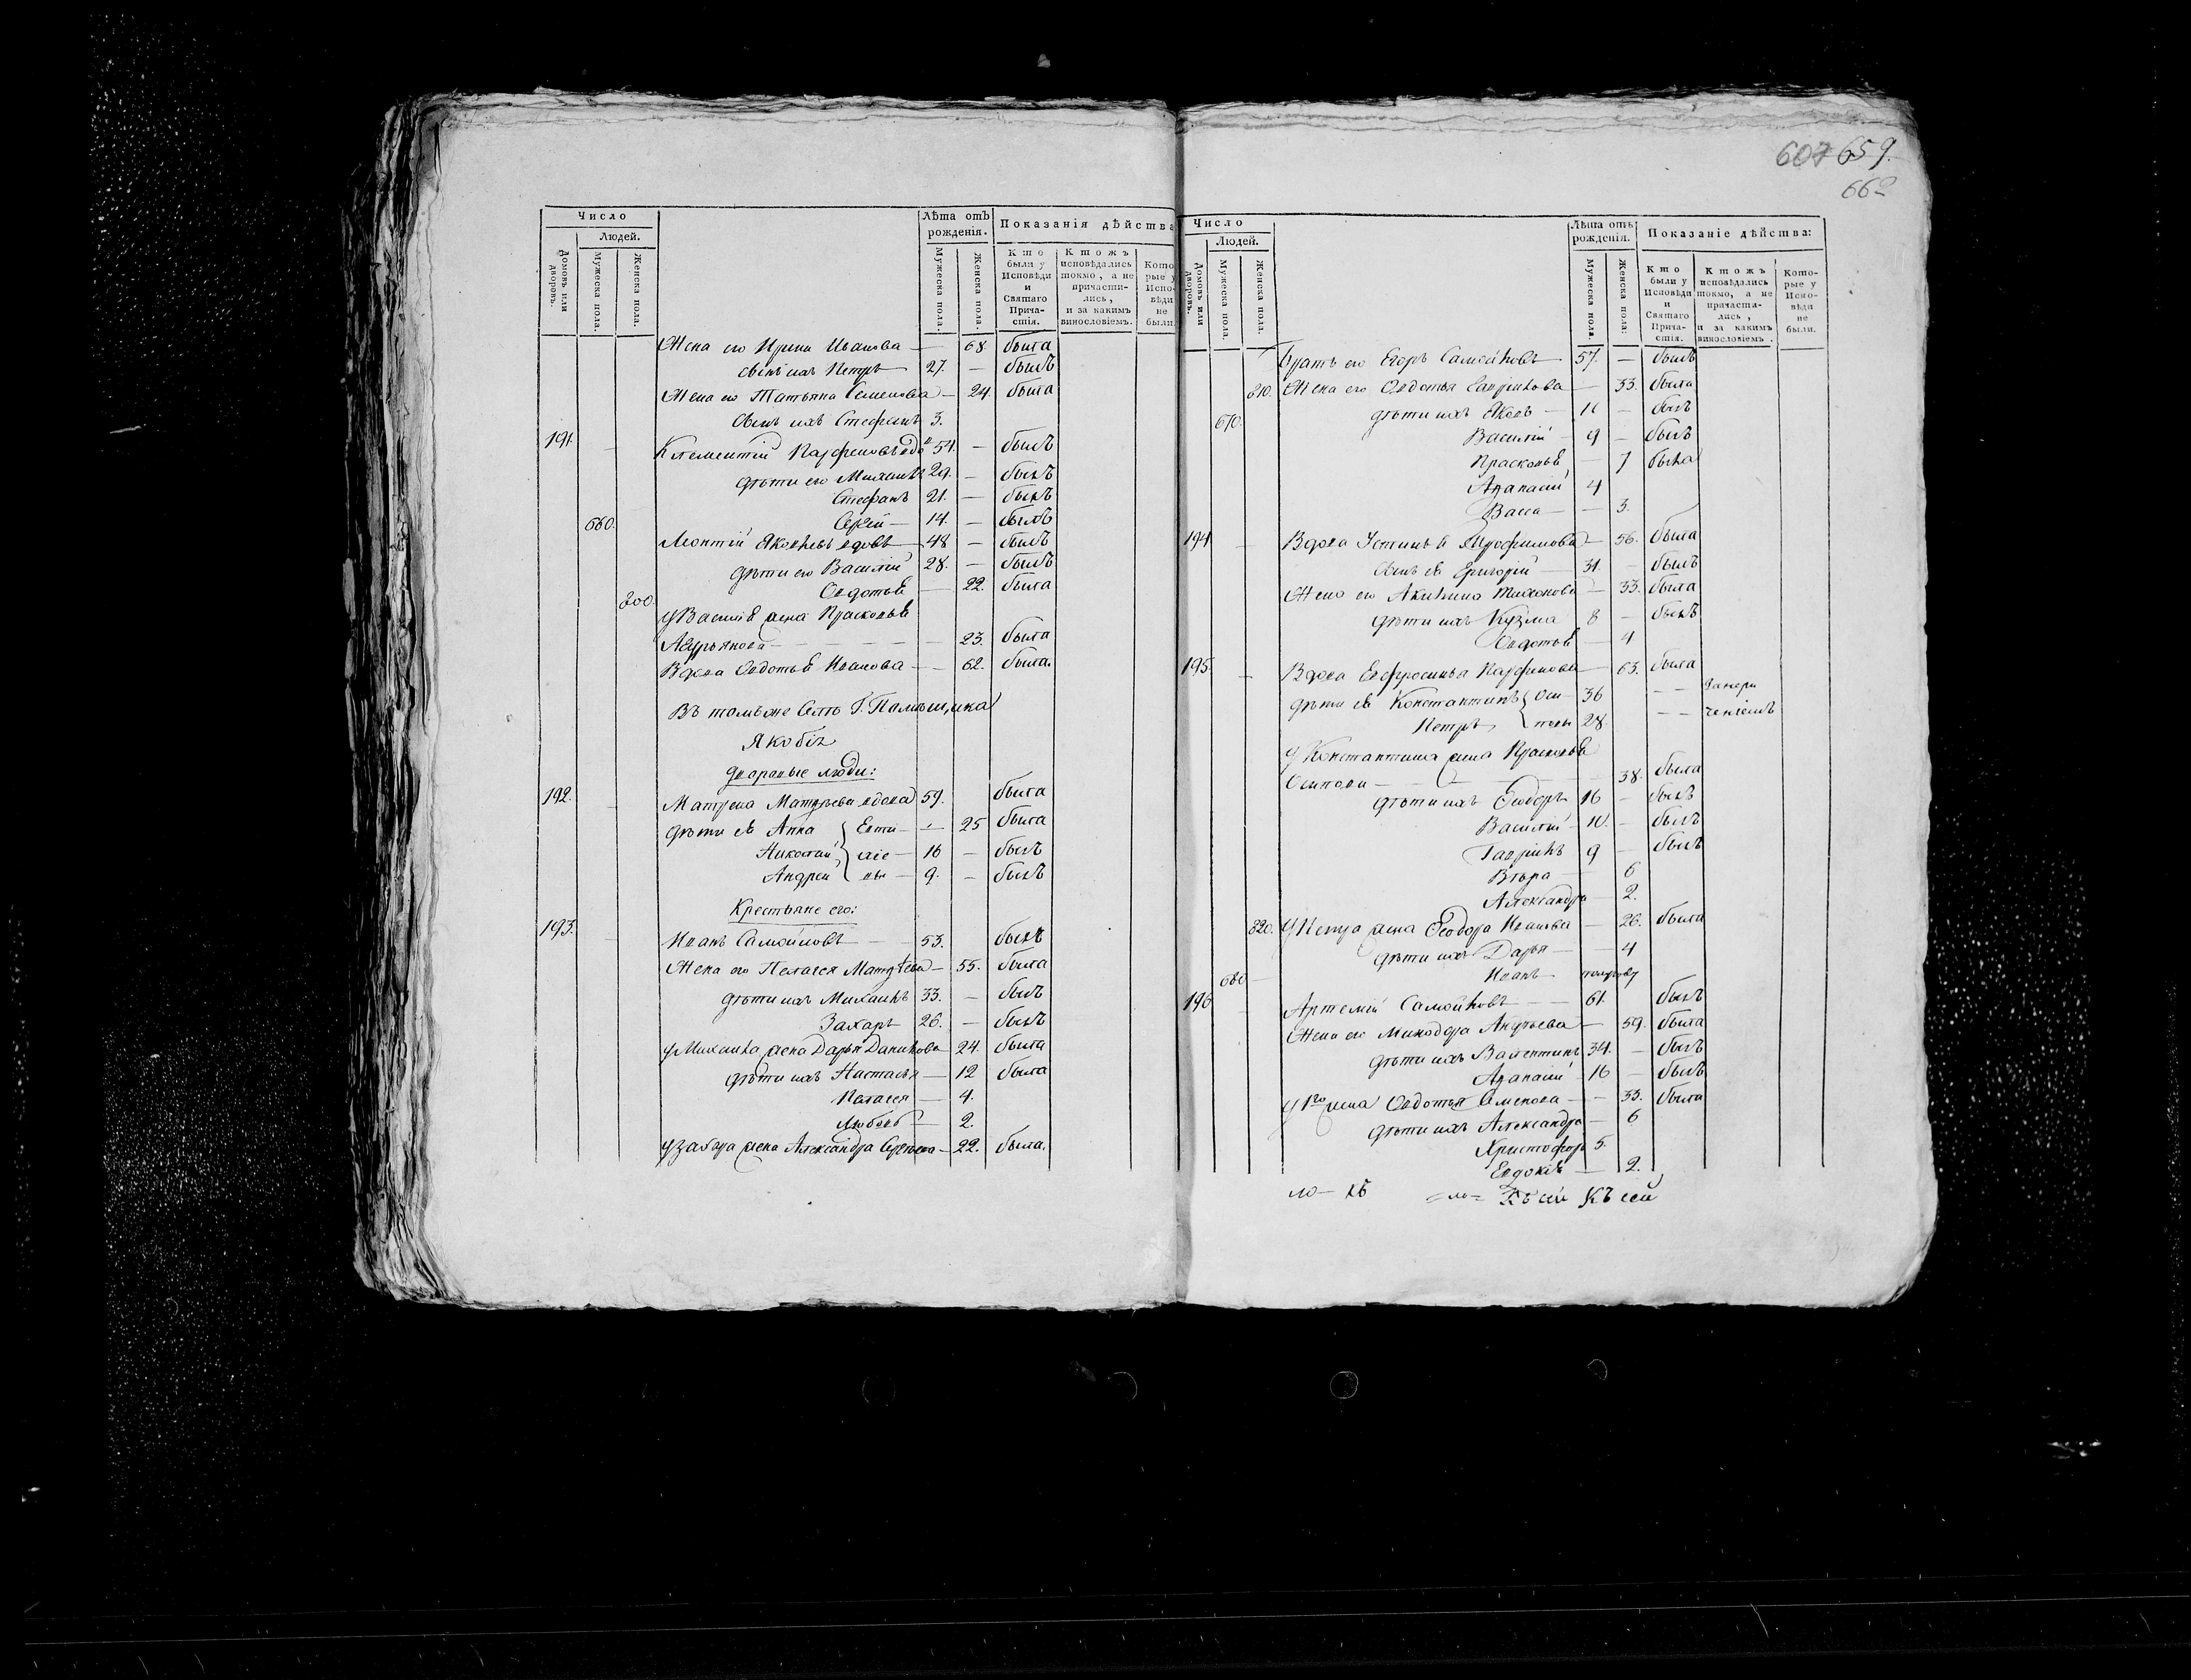 607 659.
662
Число
Людей.
Домовъ или дворовъ.
Мужеска пола.
Женска пола.
Лѣта отъ рожденія.
Мужеска пола.
Женска пола.
Показанія дѣйства
Кто были у Исповѣди и Святаго Прича-стія.
Ктожъ исповѣдались токмо, а не причасти-лись, и за какимъ винословіемъ.
Кото-рые у Испо-вѣди не были.
Жена его Ирина Иванова — 68 была
сынъ ихъ Петръ 27. — былъ
Жена его Татьяна Семенова — 24. была
Сынъ ихъ Стефанъ 3.
191. Клементій Парфеновъ вдо 54. — былъ
дѣти его Михаилъ 29. — былъ
Стефанъ 21. — былъ
660. Сергѣй — 14. — былъ
Леонтій Яковлевъ вдовъ — 48 — былъ
дѣти его Василій 28. — былъ
Овдотья — 22. была
800.
У Василія жена Прасковья
Лаурьянова — 23. была
Вдова Овдотья Иванова — 62. была.
Въ томъже Селѣ Г. Помѣщика
Якобія
дворовые люди:
192. Матрена Матвѣева вдова 59. была
дѣти ея Анна Евти — 25 была
Николай хіе — 16 — былъ
Андрей вы — 9. — былъ
Крестьяне его:
193. Иванъ Самойловъ — 53. былъ
Жена его Пелагея Матвѣева — 55. была
дѣти ихъ Михаилъ 33. — былъ
Захаръ 26. — былъ
у Михаила жена Дарья Данилова 24. была
дѣти ихъ Настасья — 12 была
Пелагея — 4.
Любовь — 2.
у Захара жена Александра Сергѣева — 22. была.
Число
Людей.
Домовъ или дворовъ.
Мужеска пола.
Женска пола.
Лѣта отъ рожденія.
Мужеска пола.
Женска пола:
Показаніе дѣйства:
Кто были у Исповѣди и Святаго Прича-стія.
Ктожъ исповѣдались токмо, а не причастя-лись, и за какимъ винословіемъ.
Кото-рые у Испо-вѣди не были.
Братъ его Егоръ Самойловъ 57. — былъ
810. Жена его Овдотья Гаврилова — 33. была
670. дѣти ихъ Яковъ — 11 — былъ
Василій 9 — былъ
Прасковья — 7 была
Афанасій 4
Васса — 3.
194 Вдова Устинья Трофимова — 56. была
сынъ ея Григорій — 31. — былъ
Жена его Акилина Тихонова — 33. была
дѣти ихъ Кузма 8 — былъ
Овдотья — 4
195. Вдова Евфросинья Парфенова — 63. была
дѣти ея Константинъ Оси — 36 — —
Петръ повы 28. — —
у Константина жена Прасковья
Осипова — 38. была
дѣти ихъ Ѳеодоръ 16 — былъ
Василій — 10. — былъ
Гаврилъ 9 — былъ
Вѣра — 6
Александра — 2.
820. у Петра жена Ѳеодора Иванова — 26. была
дѣти ихъ Дарья — 4
680 Иванъ — полугоду
196 Артемій Самойловъ — 61. былъ
Жена его Минодора Андреева — 59. была
дѣти ихъ Валентинъ 34. — былъ
Афанасій — 16 — былъ
у 1го жена Овдотья Семенова — 33. была
дѣти ихъ Александра — 6
Христофоръ 5.
Евдокія — 2.
къ сей